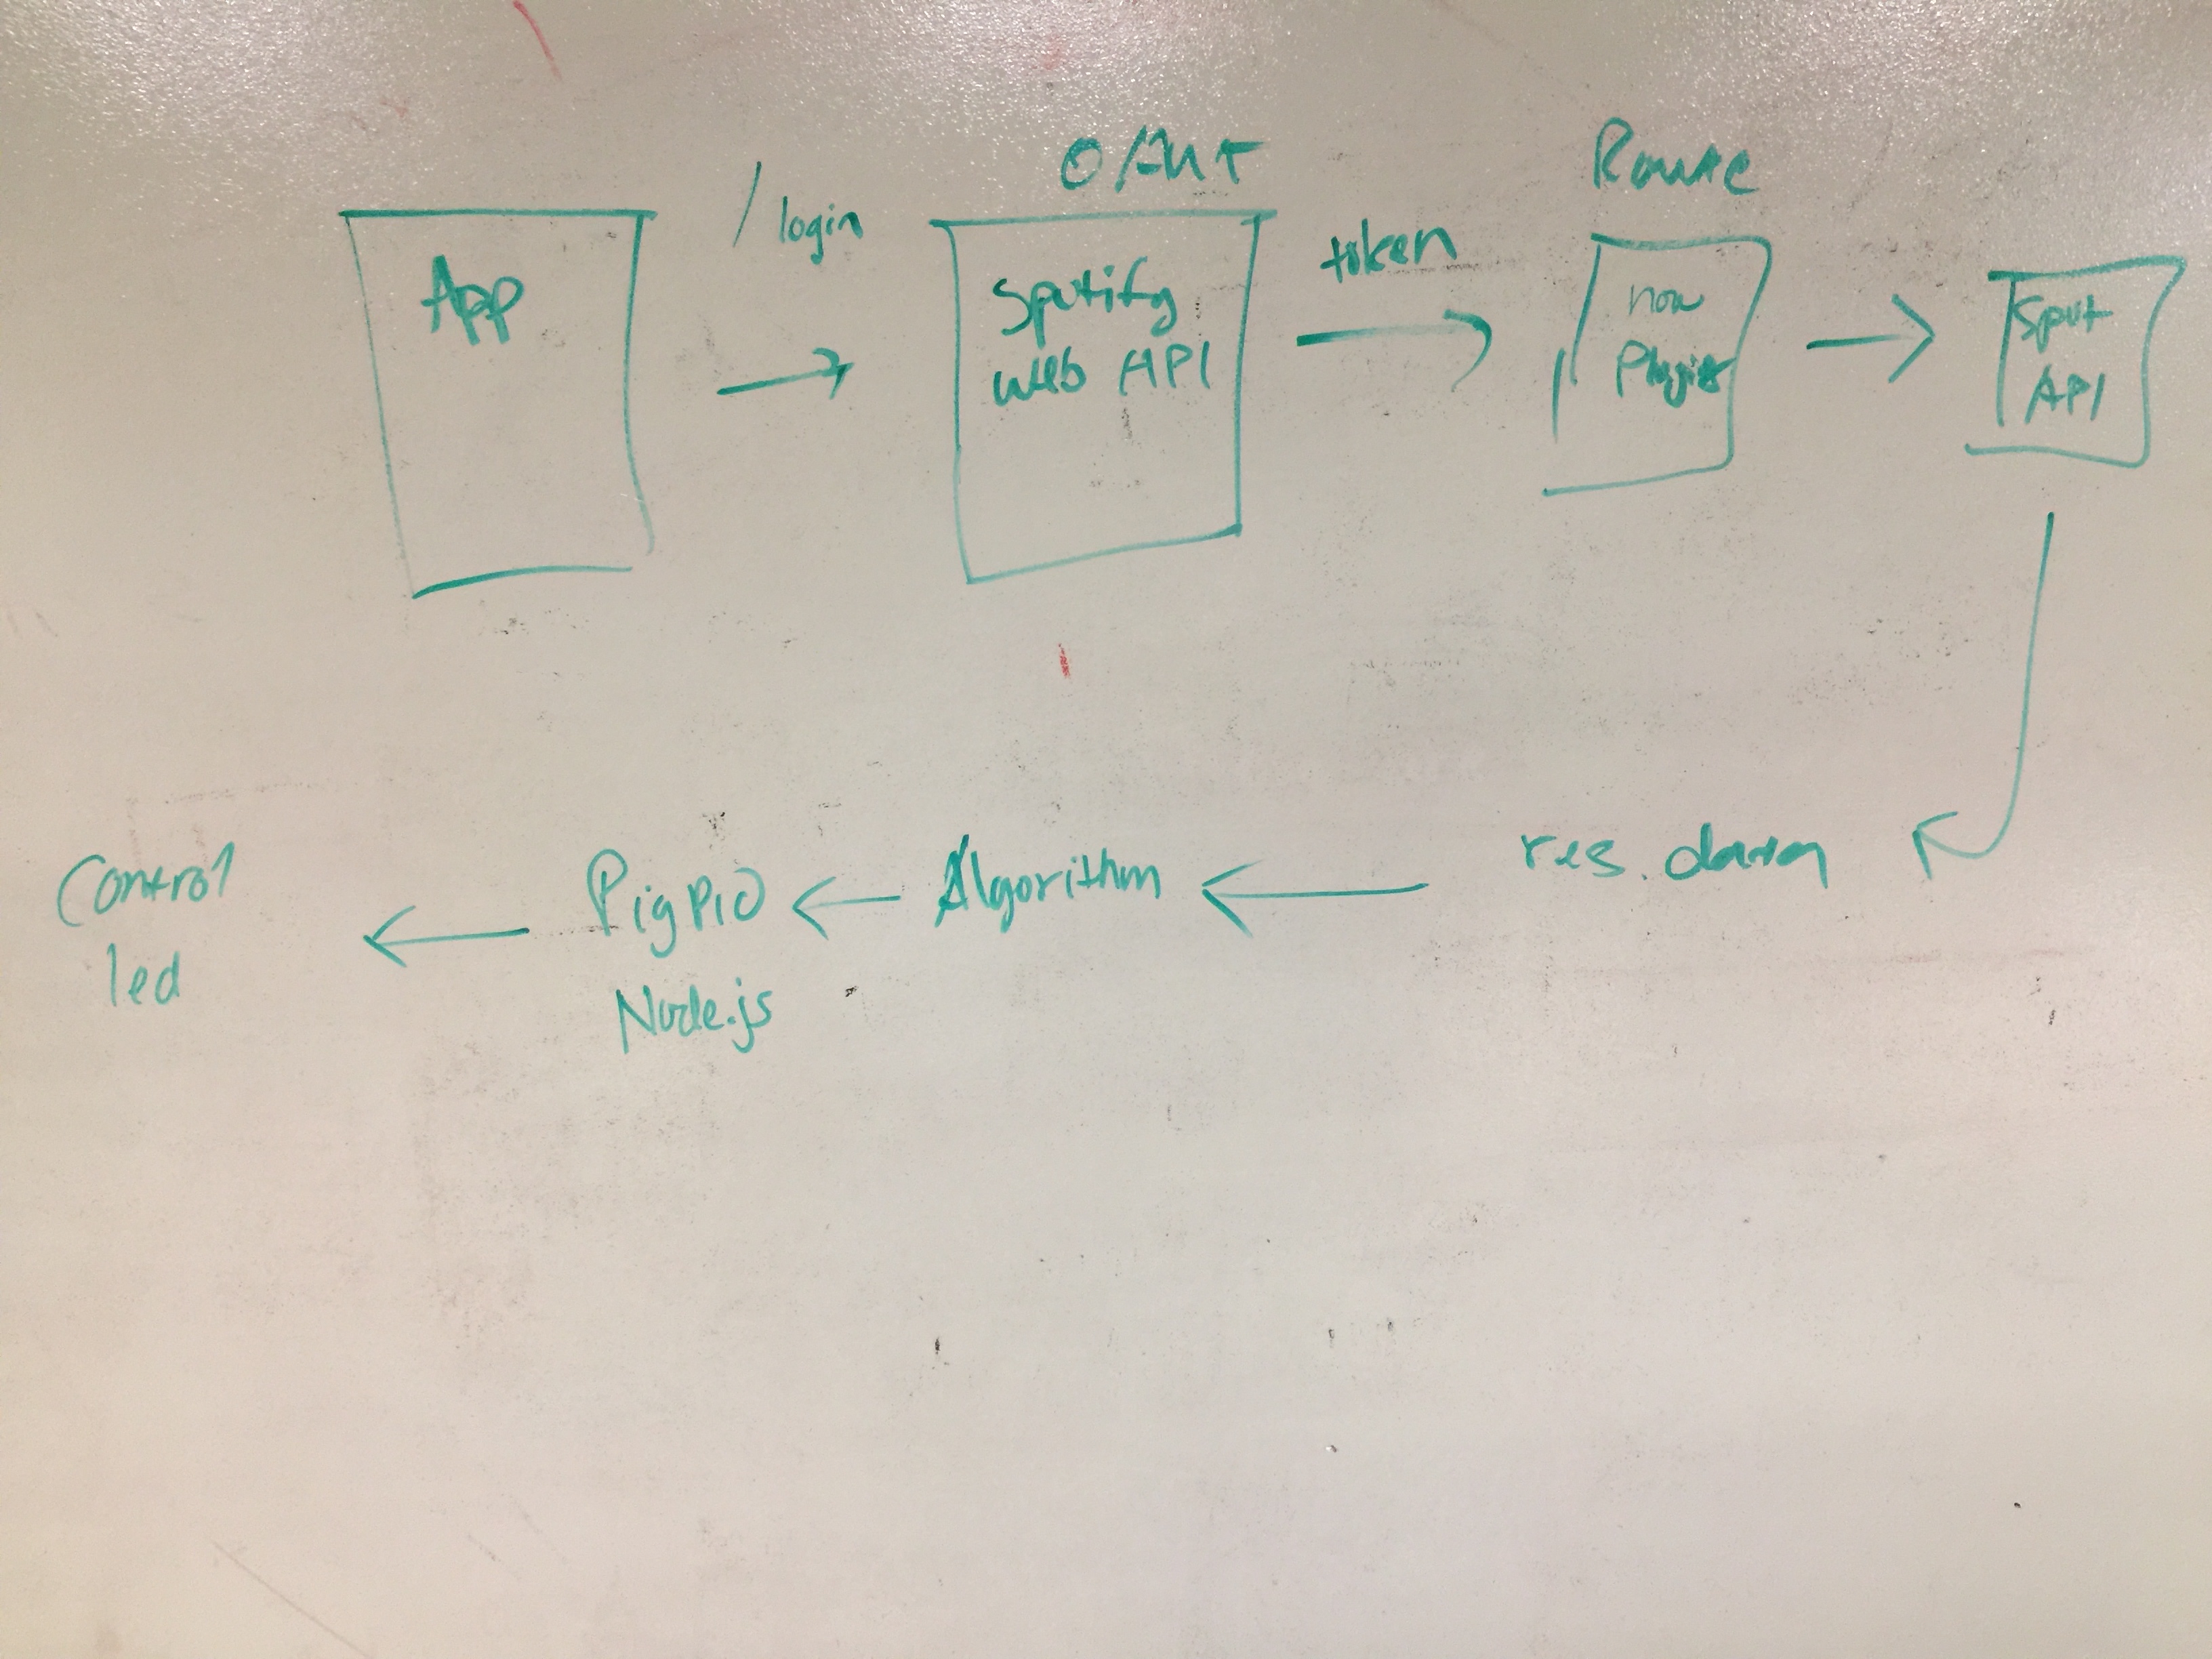 / login
O/AUT
Route
App
Spotify
web API
token
now
Playing
Spot
API
res. data
Algorithm
PigPiO
Node.js
Control
led